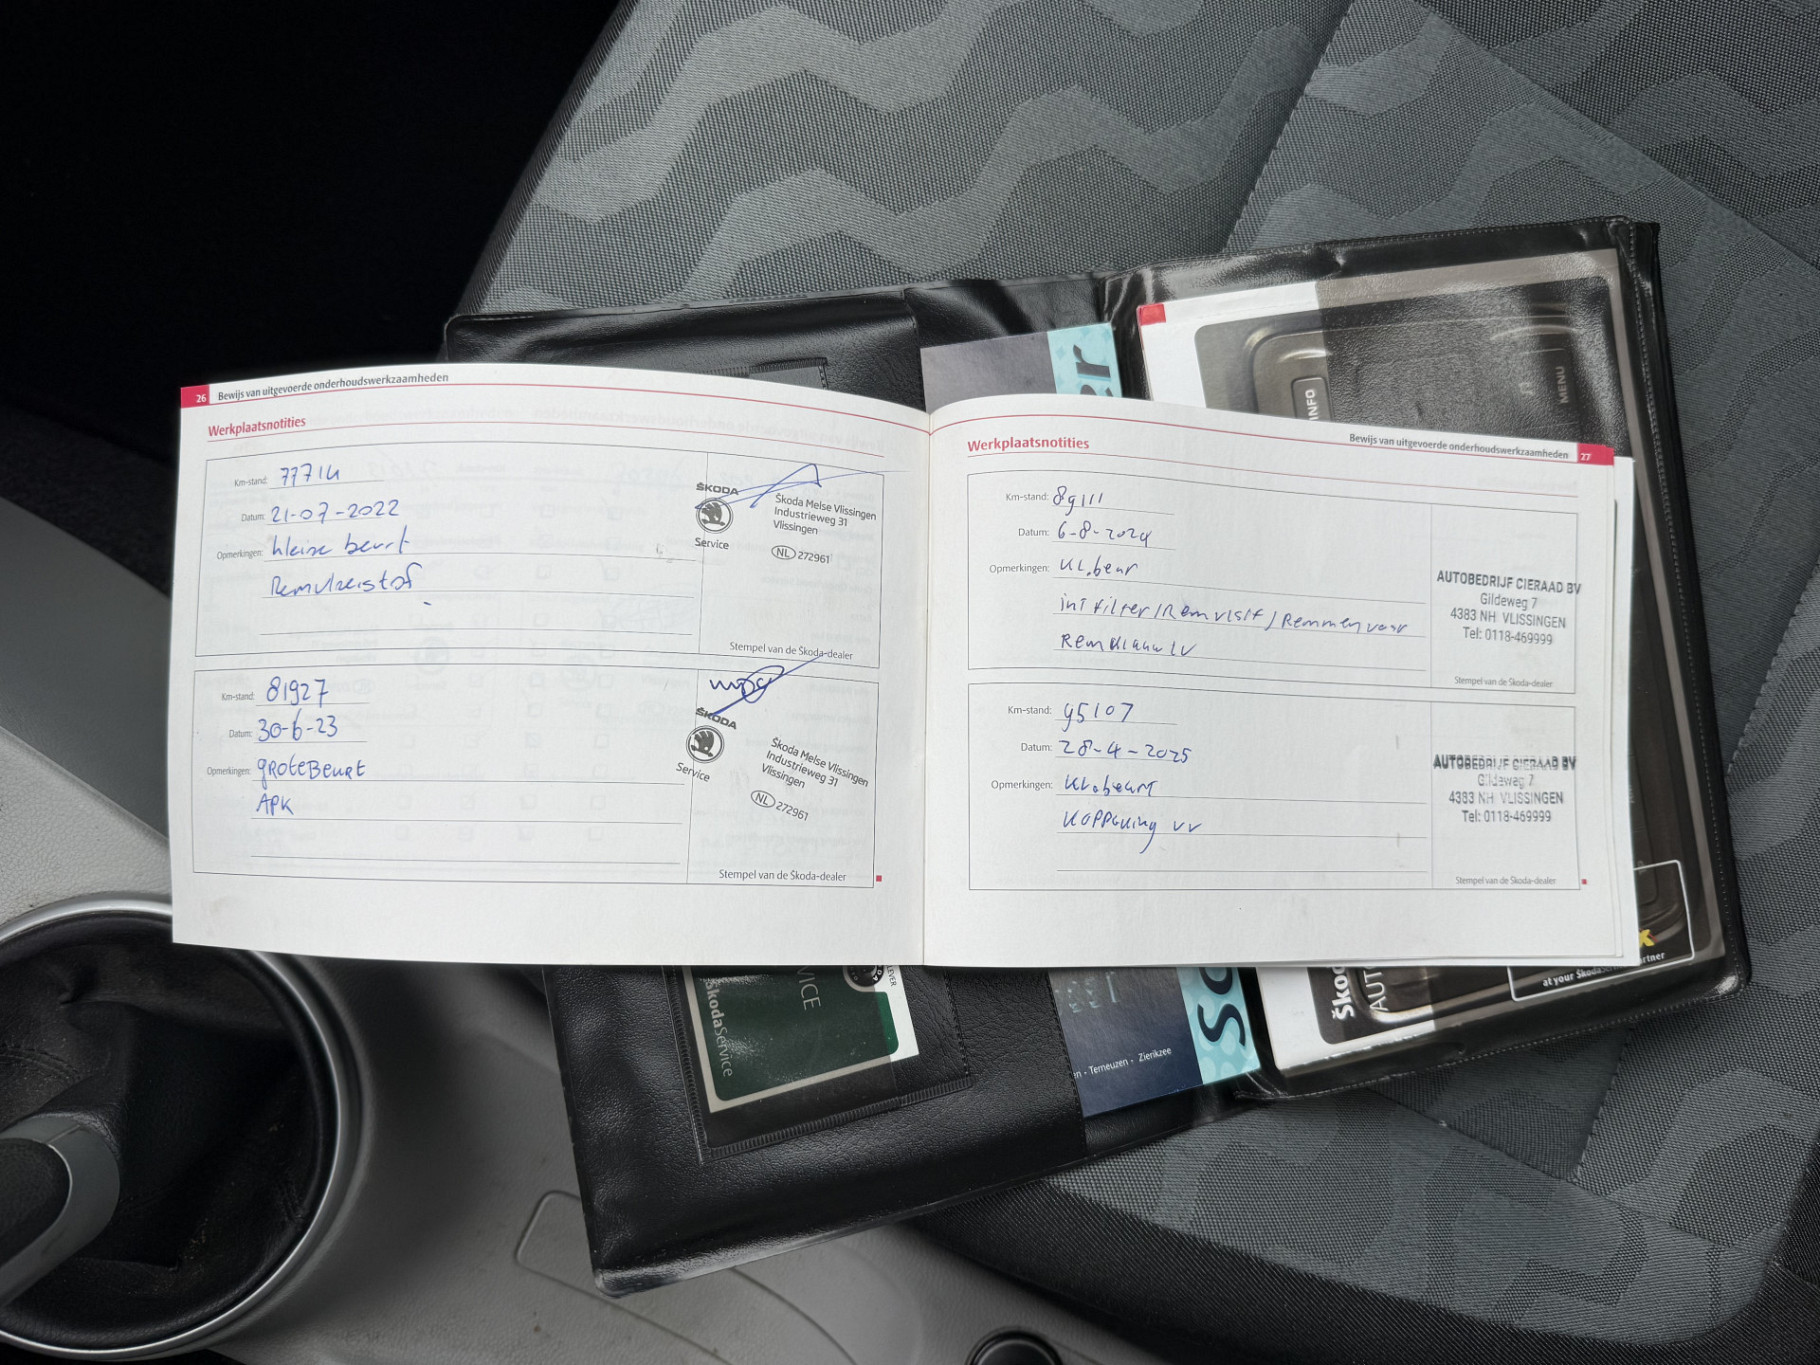 26 Bewijs van uitgevoerde onderhoudswerkzaamheden
Werkplaatsnotities
Km-stand: 77714
Datum: 21-07-2022
Opmerkingen: kleine beurt
Remvloeistof
ŠKODA
Service
Škoda Melse Vlissingen
Industrieweg 31
Vlissingen
NL 272961
Stempel van de Škoda-dealer
Km-stand: 81927
Datum: 30-6-23
Opmerkingen: groteBeurt
APK
ŠKODA
Service
Škoda Melse Vlissingen
Industrieweg 31
Vlissingen
NL 272961
Stempel van de Škoda-dealer
Bewijs van uitgevoerde onderhoudswerkzaamheden 27
Werkplaatsnotities
Km-stand: 89111
Datum: 6-8-2024
Opmerkingen: KL.beur
int filter/Remvlst/Remmen voor
Remklauw LV
AUTOBEDRIJF CIERAAD BV
Gildeweg 7
4383 NH VLISSINGEN
Tel: 0118-469999
Stempel van de Škoda-dealer
Km-stand: 95107
Datum: 28-4-2025
Opmerkingen: KL.beurt
Koppeling vv
AUTOBEDRIJF CIERAAD BV
Gildeweg 7
4383 NH VLISSINGEN
Tel: 0118-469999
Stempel van de Škoda-dealer
INFO
MENU
ŠkodaService
Terneuzen - Zierikzee
at your Škoda